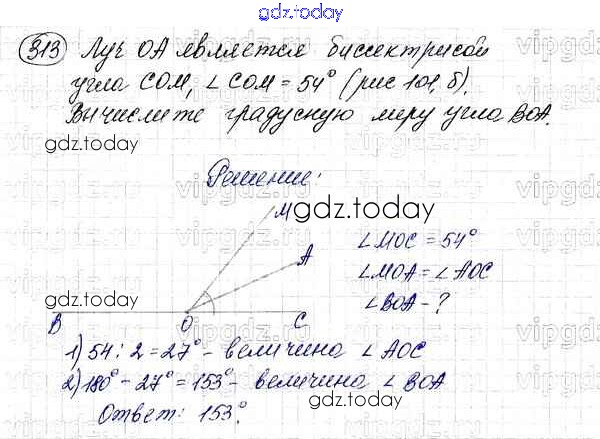 gdz.today
313 Луч ОА является биссектрисой
угла СОМ, ∠ СОМ = 54° (рис 101, б).
Вычислите градусную меру угла ВОА.
gdz.today
Решение:
М
gdz.today
А
∠МОС = 54°
∠МОА = ∠АОС
∠ВОА - ?
gdz.today
В О С
1) 54 : 2 = 27° - величина ∠ АОС
2) 180° - 27° = 153° - величина ∠ ВОА
Ответ: 153°.
gdz.today
gdz.today